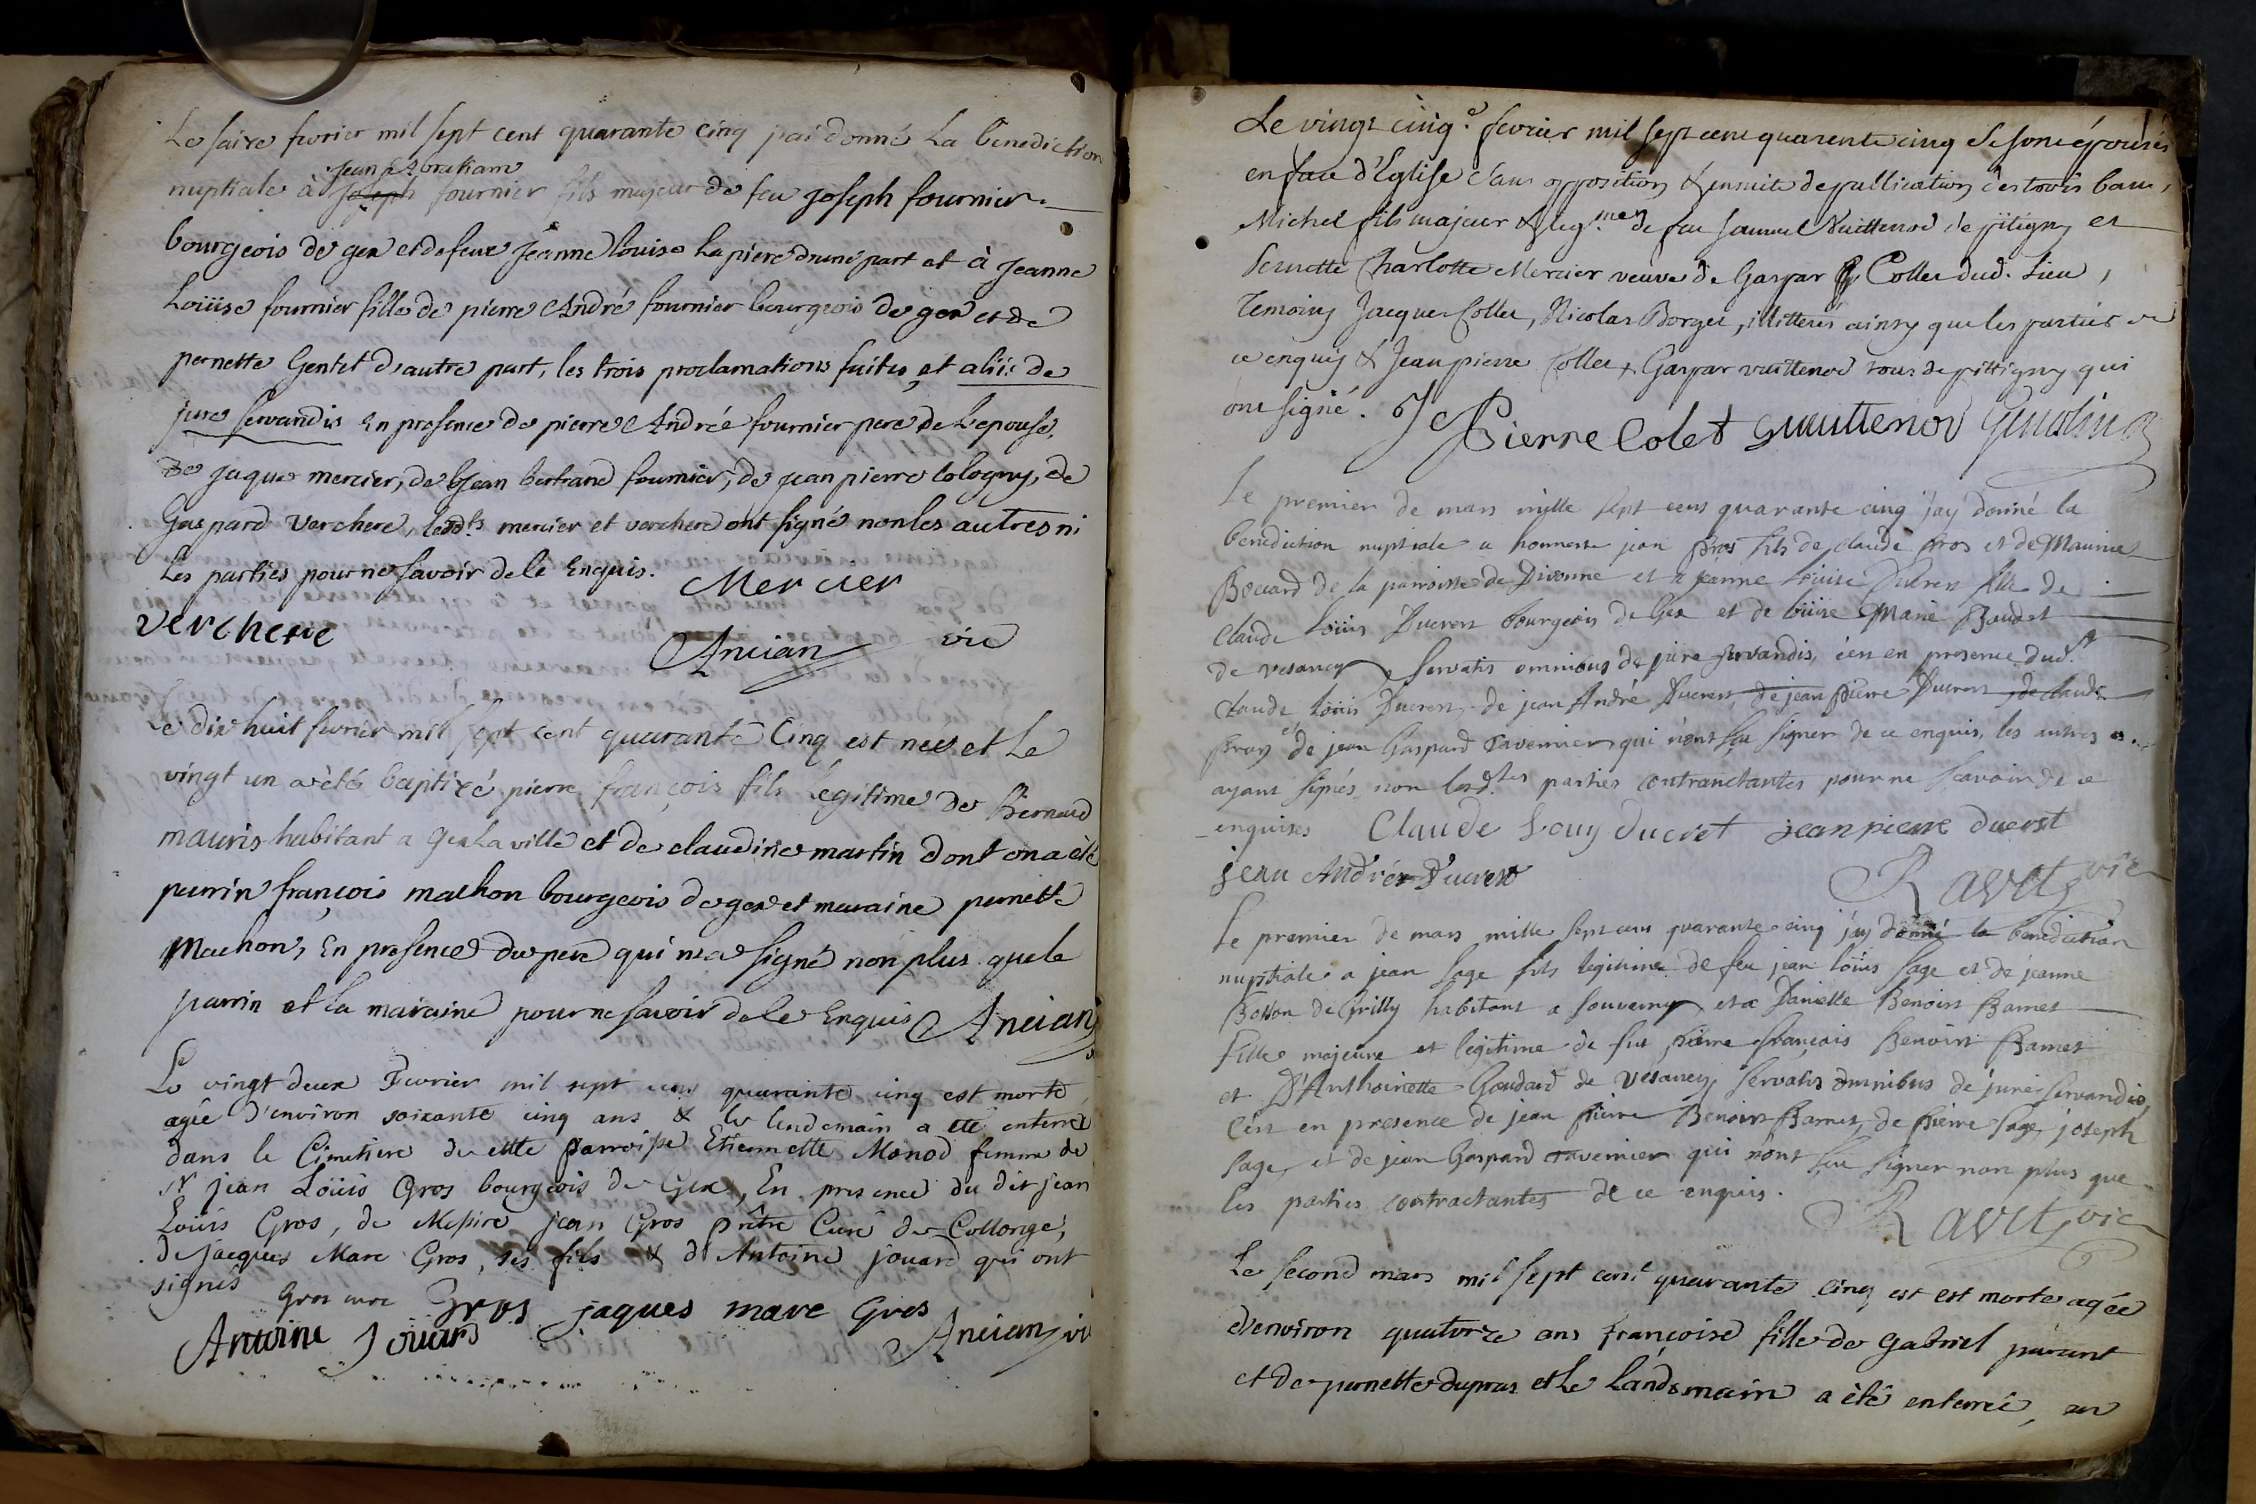 Le saize fevrier mil sept cent quarante cinq jai donné La benediction
Jean Abraham
nuptiale à Joseph fournier fils majeur de feu joseph fournier
bourgeois de gex et de feue Jeanne louise Lapierre d'une part et à Jeanne
Loüise fournier fille de pierre André fournier bourgeois de gex et de
pernette Gentet d'autre part, les trois proclamations faites, et aliis de
jure servandis En presence de pierre André fournier pere de Lepouse,
de jaque mercier, de Jean bertrand fournier, de jean pierre cologny, de
Gaspard Verchere, lesd.ts mercier et verchere ont signé non les autres ni
Les parties pour ne savoir de ce Enquis. Mercier
verchere
Ancian vic
Le dix huit fevrier mil sept cent quarante Cinq est nee et Le
vingt un a été baptizé pierre françois fils légitime de Bernard
mauris habitant a Gex La ville et de claudine martin dont on a été
parrin françois machon bourgeois de gex et maraine pernette
Machon, En presence du pere qui n'a signé non plus que le
parrin et la maraine pour ne savoir de ce Enquis Ancian
Le vingt deux Fevrier mil sept cent quarante cinq est morte
agée d'environ soixante cinq ans & le lendemain a été enterrée
dans le Cimetiere de cette Parroisse Etiennette Monod femme de
Sr jean Loüis Gros bourgeois de Gex, En presence du dit jean
Loüis Gros, de Messire jean Gros Prêtre Curé de Collonge,
de jacques Marc Gros, ses fils & d'Antoine jouard qui ont
signés Gros curé Gros jaques marc Gros
Antoine Jouard Ancian vi
Le vingt cinq.e fevrier mil sept cent quarente cinq se sont épousés
en face d'Eglise sans opposition & ensuite de publication des trois bans,
Michel fils majeur & leg.me de feu Samuel Vuittenod de pitigny et
Pernette Charlotte Mercier veuve de Gaspar Collet dud. Lieu,
Temoins Jacques Collet, Nicolas Borget, illitterés ainsy que les parties de
ce enquis & Jean pierre Collet, Gaspar vuittenod tous de pittigny qui
ont signé. J Pierre Colet G vuittenod Gindin
Le premier de mars mille sept cens quarante cinq j'ay donné la
benediction nuptiale a honneste jean Pros fils de claude Pros et de Maurice
Bouard de la parroisse de Divonne et a jeanne Loüise Ducrest fille de
Claude Loüis Ducrest bourgeois de Gex et de loüise Marie Baudet
de vesancy servatis omnibus de jure servandis, c'est en presence dud.t
Claude Loüis Ducrest, de jean André Ducrest, de jean Pierre Ducrest, de claude
Pros et de jean Gaspard Tavernier qui n'ont seu signer de ce enquis, les autres
ayant signés non lesd.tes parties contranctantes pour ne scavoir de ce
enquises Claude Louy ducret jean pierre ducrst
jean André Ducrest
Ravet vic
Le premier de mars mille sept cens quarante cinq j'ay donné la benediction
nuptiale a jean Sage fils legitime de feu jean loüis Sage et de jeanne
Bosson de Grilly habitant a Souverny et a Danielle Benoist Barnet
fille majeure et legitime de feu pierre françois Benoist Barnet
et D'Anthoinette Goudard de Vesancy, servatis omnibus de jure servandis,
c'est en presence de jean Pierre Benoist Barnet, de Pierre Sage, joseph
Sage, et de jean Gaspard Tavernier qui n'ont seu signer non plus que
les parties contractantes de ce enquis.
Ravet vic
Le second mars mil sept cent quarante cinq est est morte agée
d'environ quatorze ans françoise fille de Gabriel parant
et de pernette dupras et Le landemain a été enterrée, en